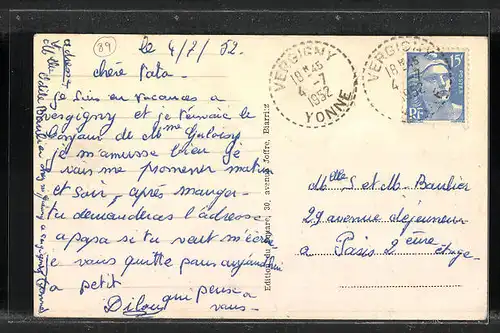 89
le 4/7/52.
chère Tata
je suis en vacances a
vergigny et je t'envoie le
bonjour de Mme
je m'amusse bien je
vais me promener matin
et soir, après manger
tu demanderas l'adresse
a papa si tu veut m'écrire
je vous quitte pour aujourd'hui
a petit
qui pense a
Dilou vous-
Edition du Square, 30, avenue Joffre, Biarritz
VERGIGNY
18 H 45
4 -7
1952
YONNE
VERGIGNY
18 H 45
4
15F
POSTES
RF
Mlle S et M. Baulier
29 avenue
a Paris 2 ème étage-